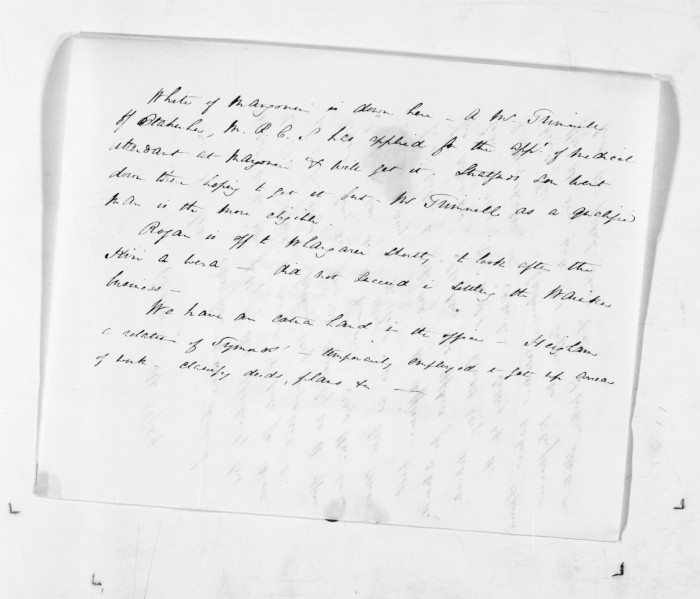 White of Mangonui is down here - A Mr. Trimnell
of M. R. C. S has applied for the appt. of Medical
attendant at Mangonui & will get it. son went
down then hoping to get it but - Mr Trimnell as a qualified
man is the more eligible
Rogan is off to shortly - to look after the
- did not succeed in settling the
business -
We have an extra hand in the office -
a relation of - temporarily employed to get up arrears
of work classify deeds, plans &c -